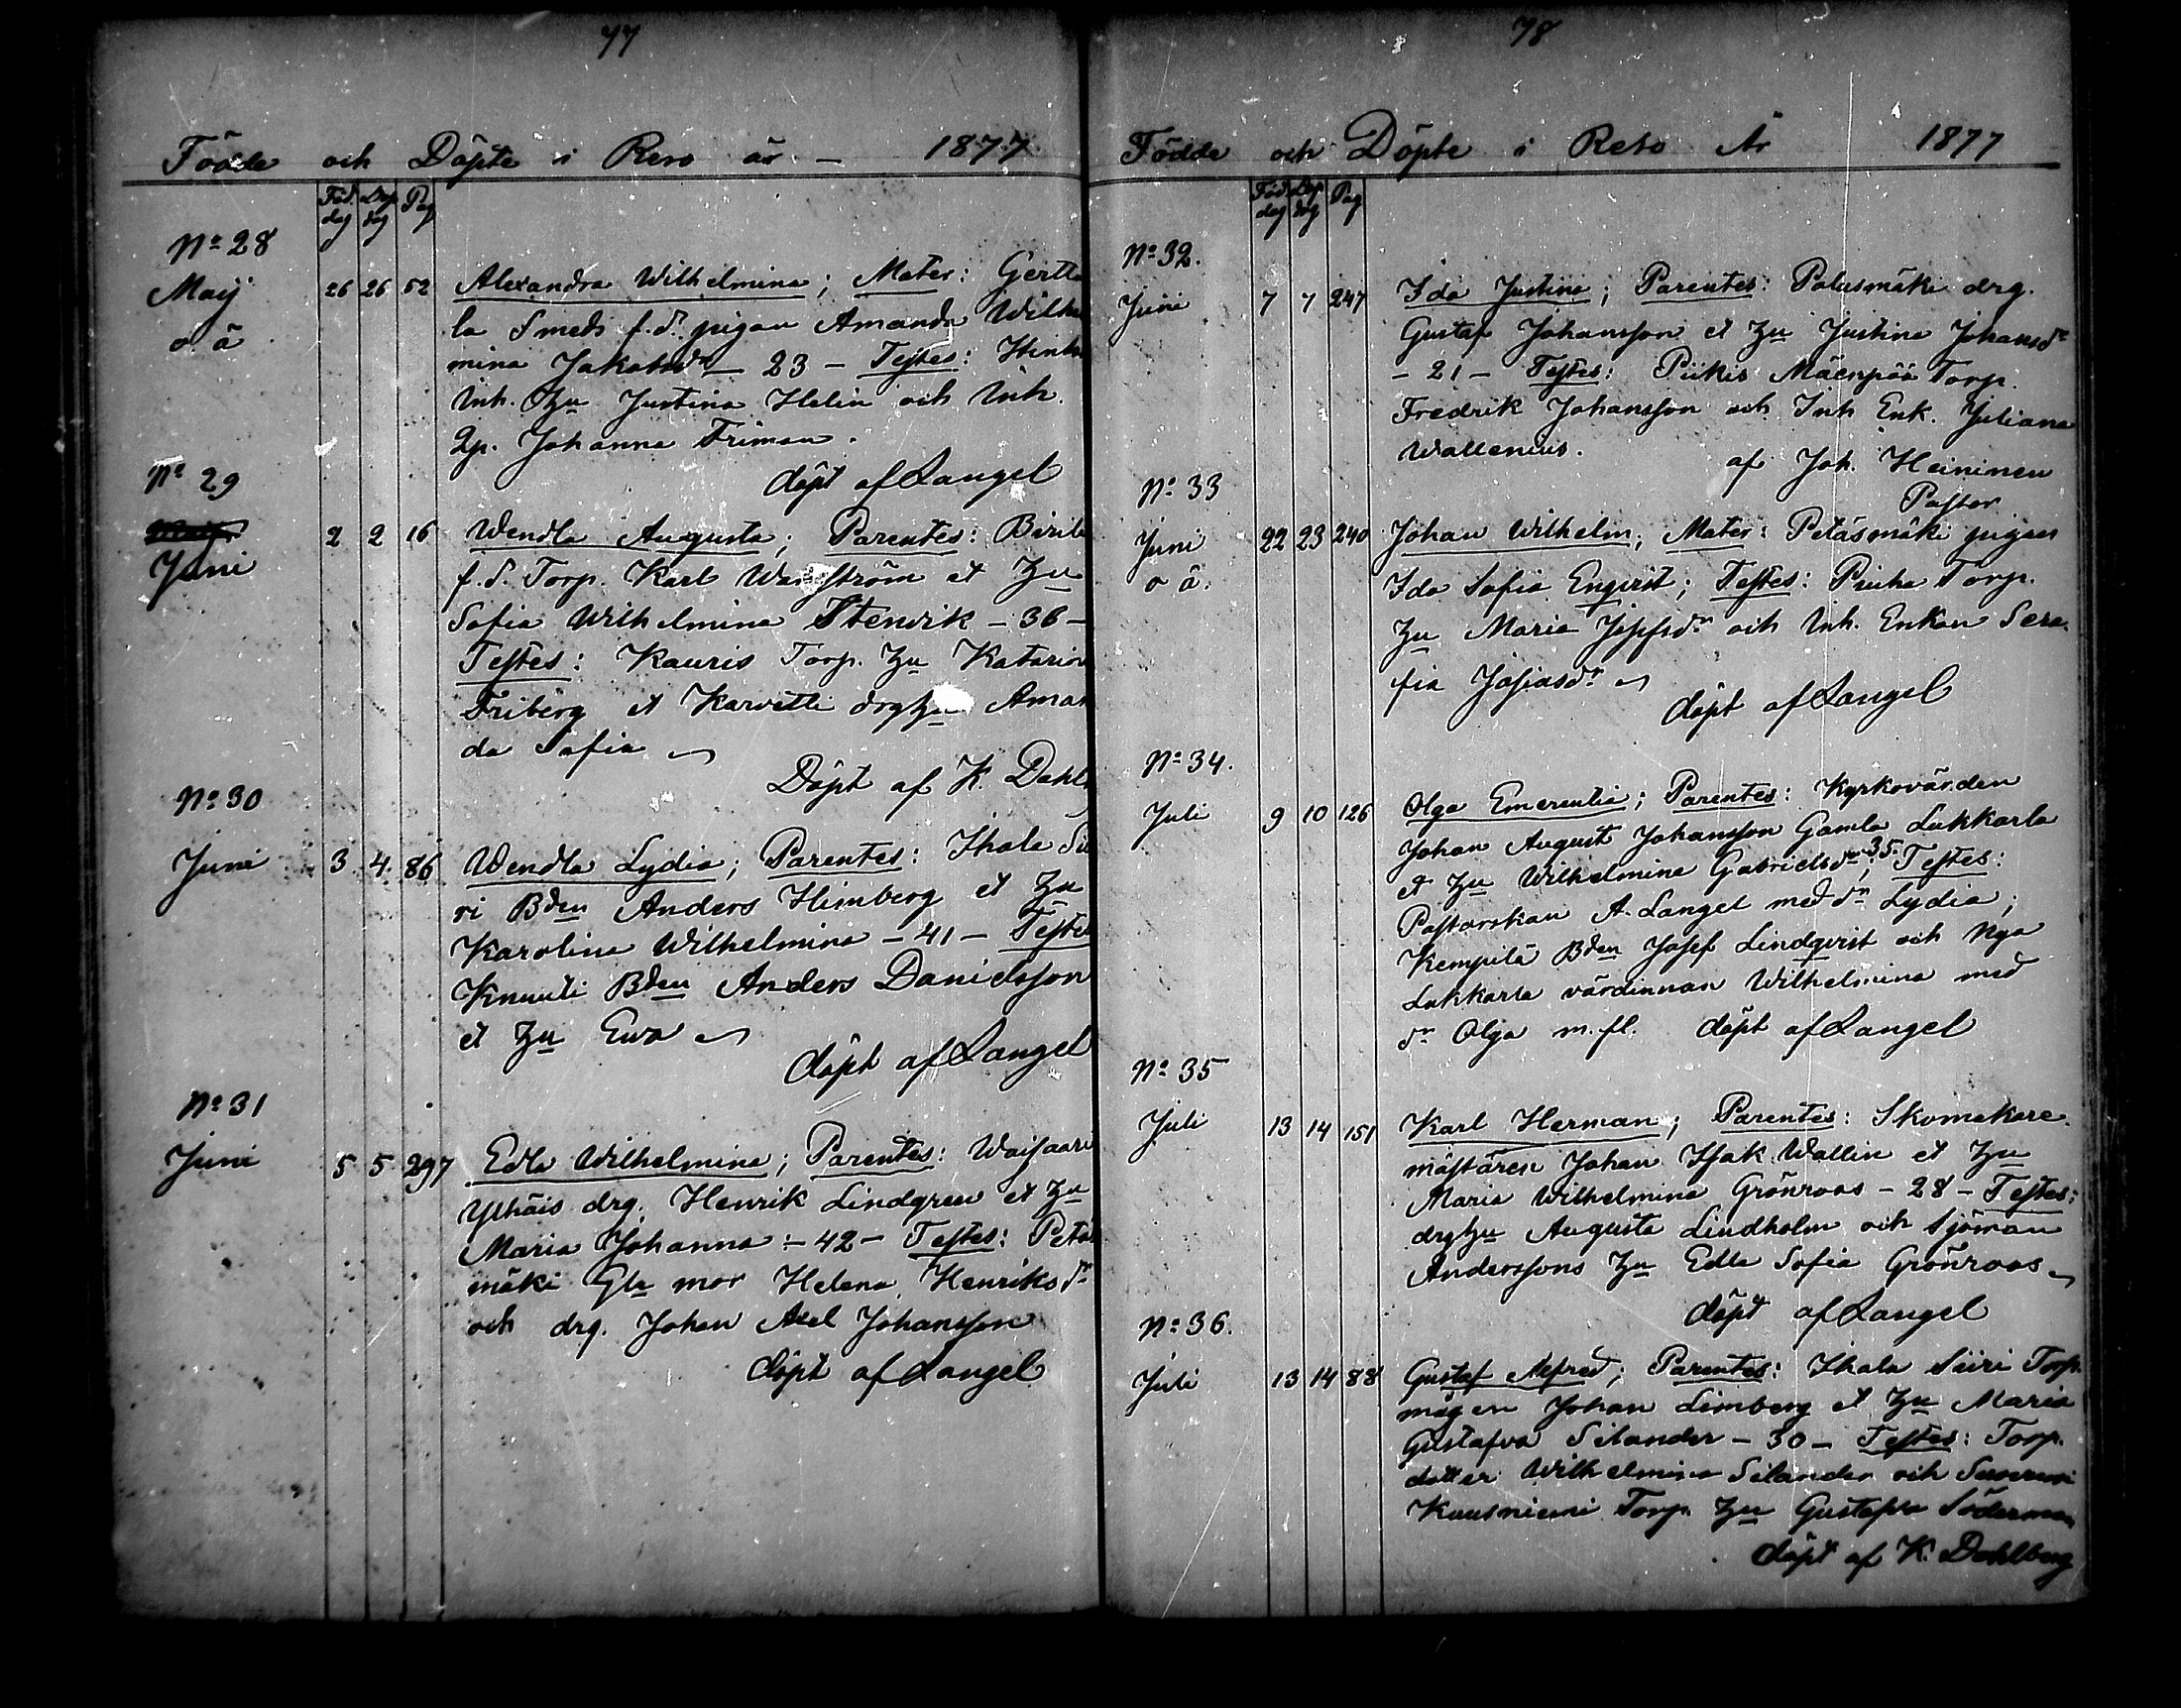 77
Födde och Döpte i Reso år – 1877
Föd. dag Döp dag Pag
No 28
Maij 26 26 52 Alexandra Wilhelmina; Mater: Gertta
o. ä
la Smeds f.d. pigan Amanda Wilhel
mina Jakobsdr – 23 – Testes:
Inh. Hu Justina Helin och Inh.
Qp. Johanna Friman.
döpt af Langel
No 29
Juni 2 2 16 Wendla Augusta; Parentes:
f.d. Torp. Karl ström et Hu
Sofia Wilhelmina Stenvik – 36 –
Testes: Kauris Torp. Hu Katarin
Friberg et Karvetti drghu Aman
da Sofia
Döpt af K. Dahl
No 30
Juni 3 4 86 Wendla Lydia; Parentes: Ihala Sii
ri Bden Anders Himberg et Hu
Karolina Wilhelmina – 41 – Testes
Knuuti Bden Anders Danielsson
et Hu Ewa
döpt af Langel
No 31
Juni 5 5 297 Edla Wilhelmina; Parentes: Waisaari
Ylhäis drg. Henrik Lindgren et Hu
Maria Johanna – 42 – Testes: Petäs
mäki Gla mor Helena Henriksdr
och drg. Johan Axel Johansson
döpt af Langel
78
Födde och Döpte i Reso År 1877
Föd. dag Döp dag Pag
No 32.
Juni 7 7 247 Ida Justina; Parentes: Palusmäki drg.
Gustaf Johansson et Hu Justina Johansdr
– 21 – Testes: Piikis Mäenpää Torp.
Fredrik Johansson och Inh Enk. Juliana
Wallenius.
af Joh. Heininen
Pastor
No 33
Juni 22 23 240 Johan Wilhelm; Mater: Petäsmäki pigan
o ä.
Ida Sofia Enqvist; Testes: Torp.
Hu Maria Josefsdr och Inh. Enkan Sera-
fia Josiasdr
döpt af Langel
No 34.
Juli 9 10 126 Olga Emerentia; Parentes: Kyrkovärden
Johan August Johansson Gamla Lukkarla
et Hu Wilhelmina Gabrielsdr 35. Testes:
Pastorskan A. Langel med dr Lydia;
Kempilä Bden Josef Lindqvist och Nya
Lukkarla värdinnan Wilhelmina med
dr Olga m. fl. döpt af Langel
No 35
Juli 13 14 151 Karl Herman; Parentes: Skomakare-
mästaren Johan Isak Wallin et Hu
Maria Wilhelmina Grönroos – 28 – Testes:
drghu Augusta Lindholm och Sjöman
Anderssons Hu Edla Sofia Grönroos
döpt af Langel
No 36.
Juli 13 14 88 Gustaf Alfred; Parentes: Ihala Siiri Torp.
mågen Johan Limberg et Hu Maria
Gustafva Silander – 30 – Testes: Torp.
dotter Wilhelmina Silander och
Kuusniemi Torp. Hu Gustafva Söderman
döpt af K. Dahlberg